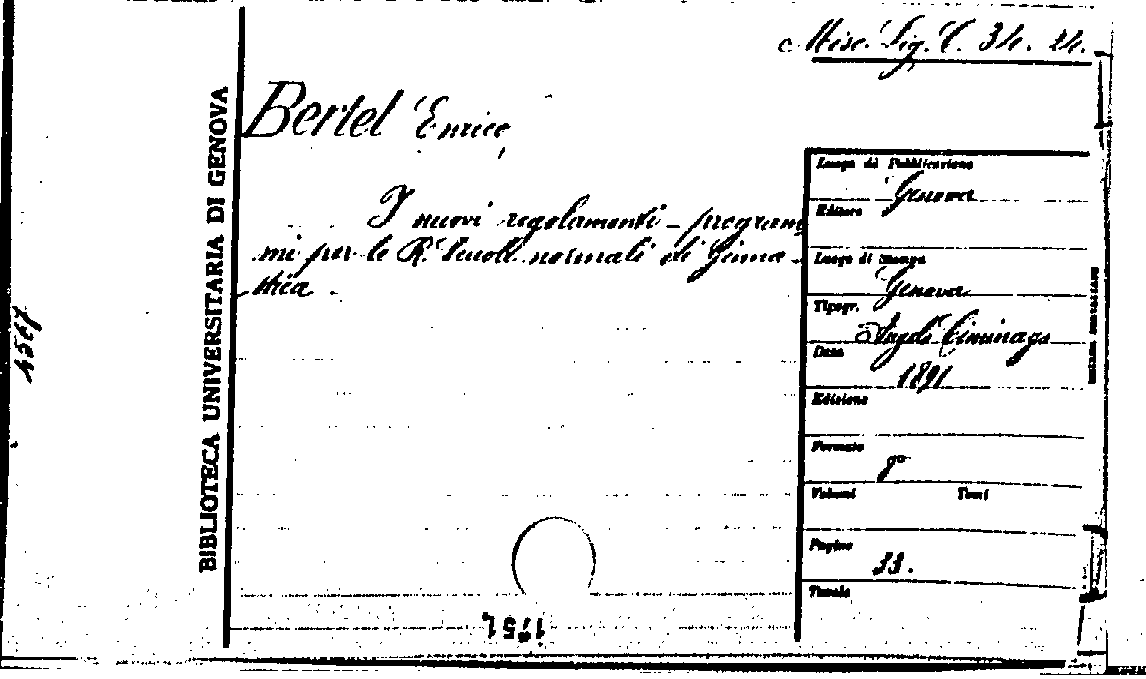 Misc. Lig. C. 34. 24.
Bertel Enrico
I nuovi regolamenti - program
mi per le R. Scuole normali di Ginna-
stica.
BIBLIOTECA UNIVERSITARIA DI GENOVA
Luogo di Pubblicazione
Genova
Editore
Luogo di Stampa
Genova
Tipogr.
Angelo Ciminago
Data
1891
Edizione
Formato
8°
Volumi Tomi
Pagine
33.
Tavole